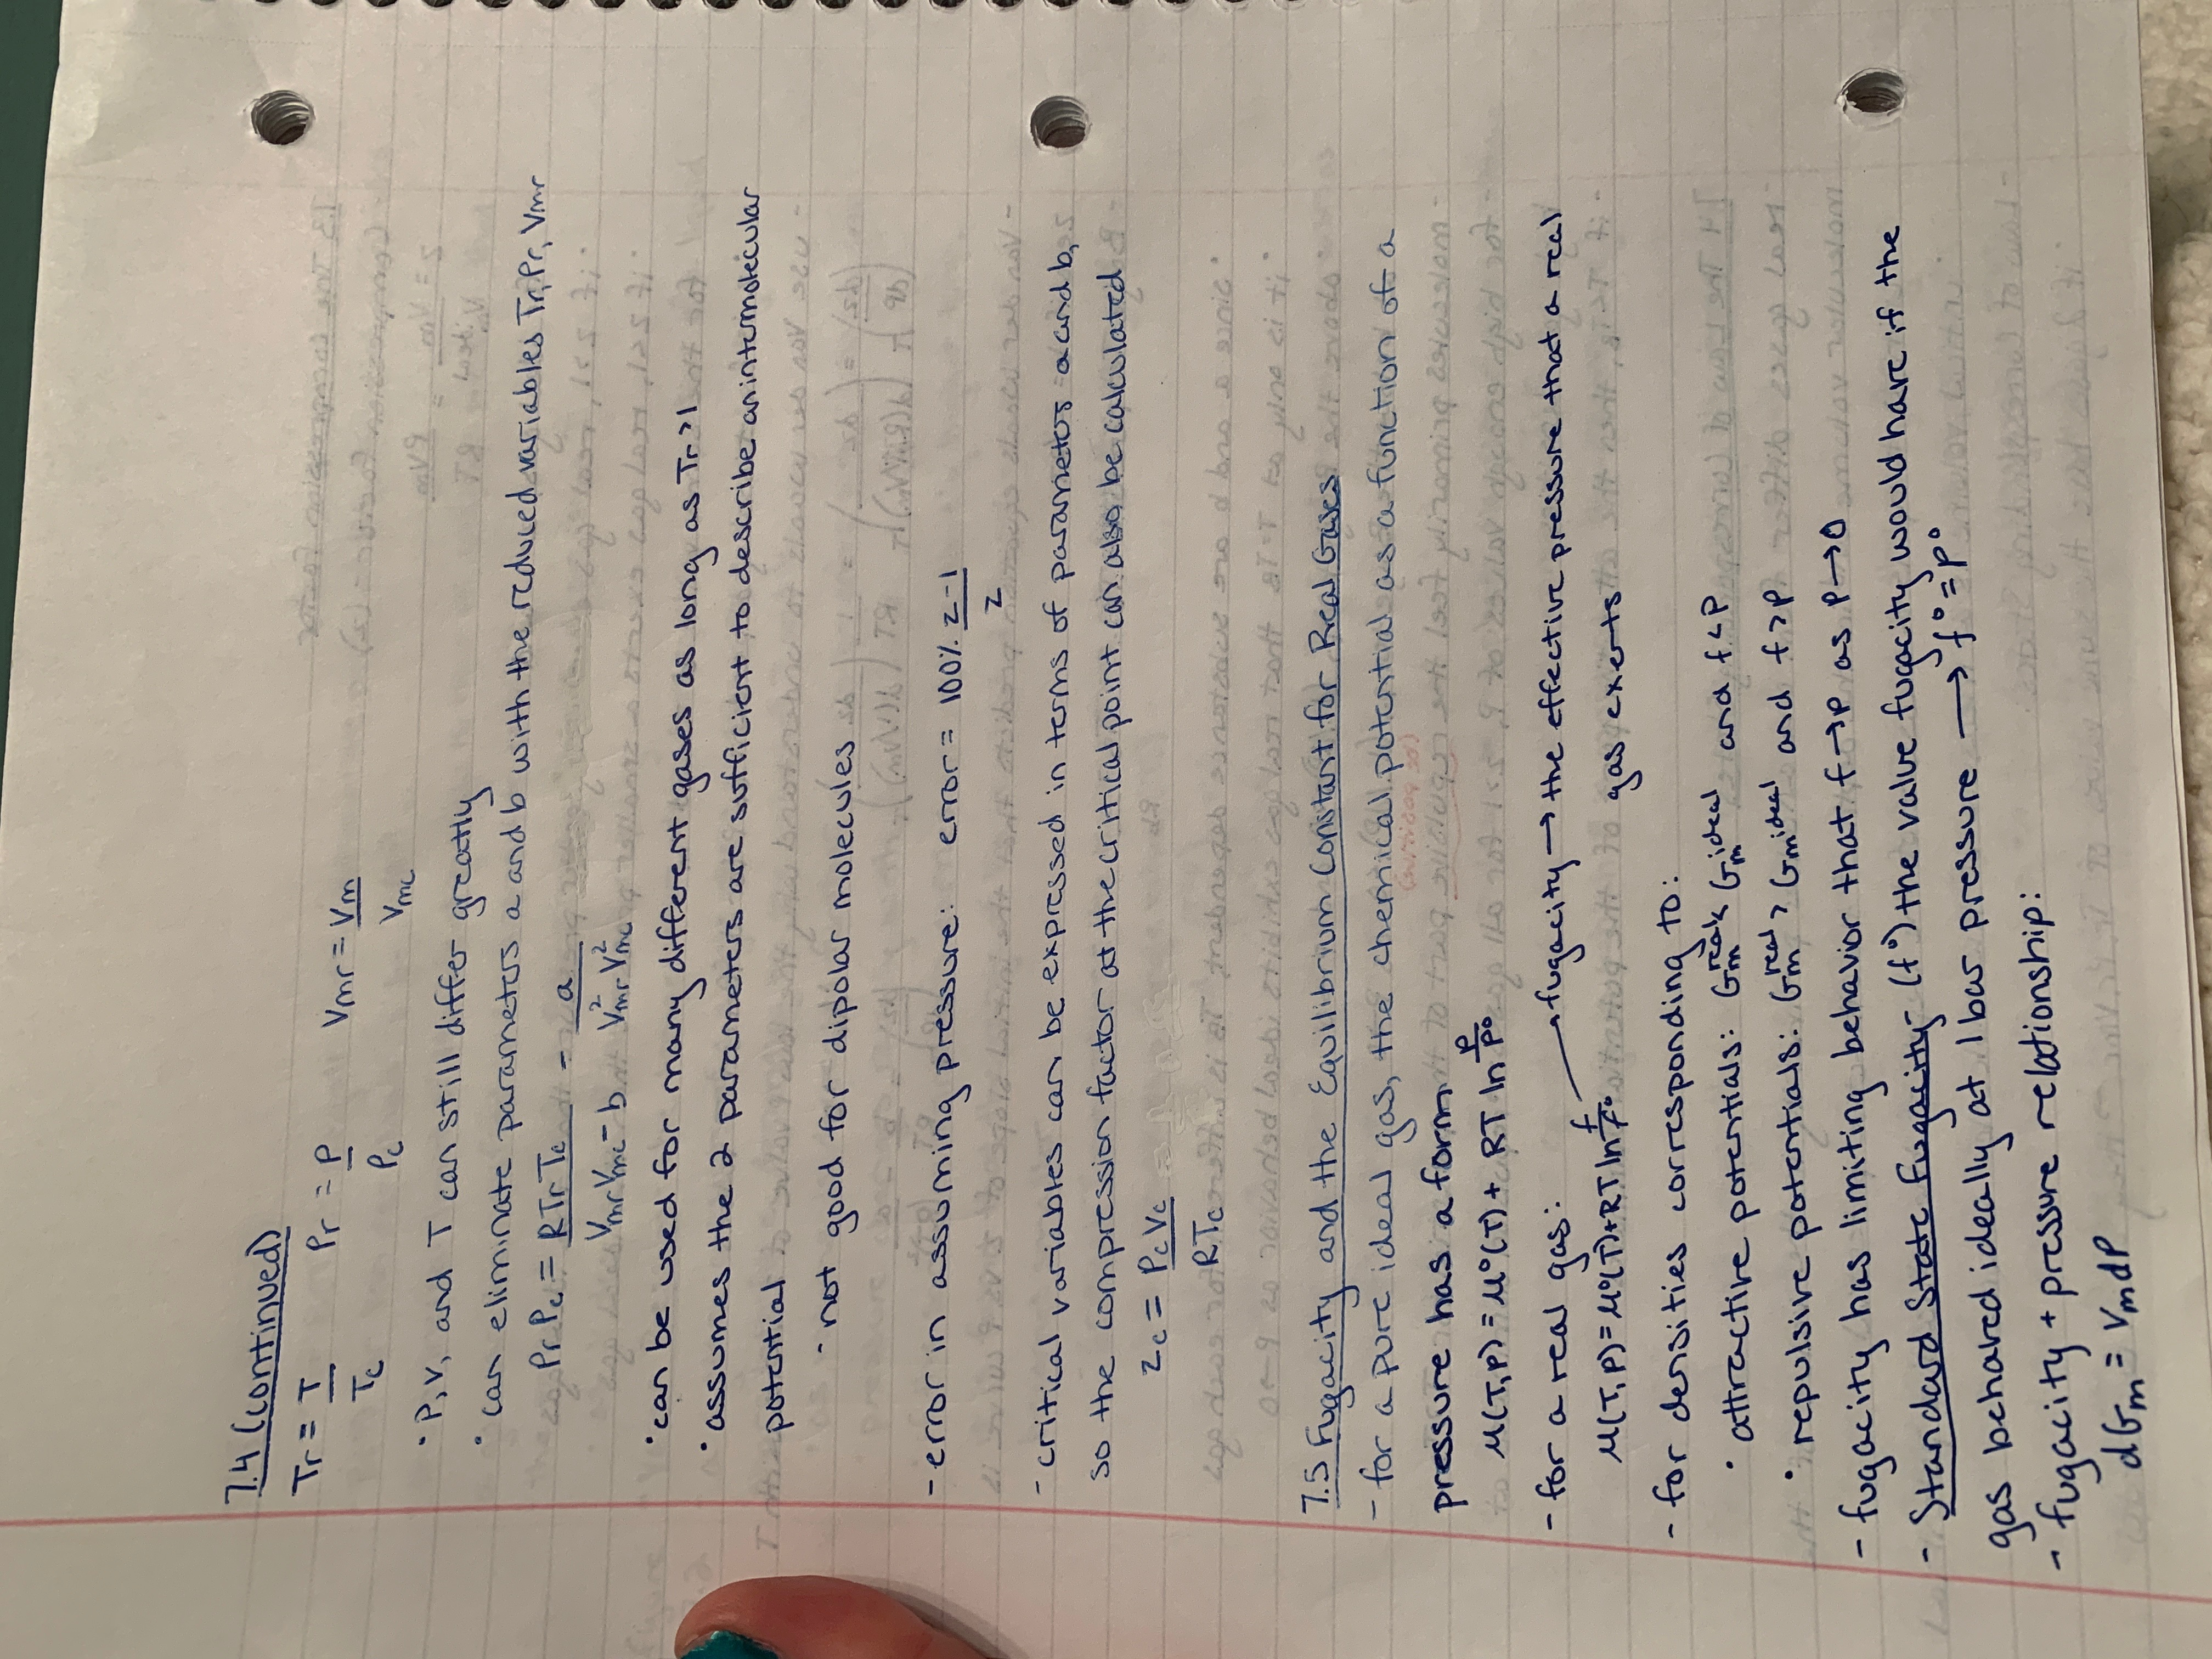 7.4 (continued)
Tr = T/Tc    Pr = P/Pc    Vmr = Vm/Vmc
· P, V, and T can still differ greatly
· can eliminate parameters a and b with the reduced variables Tr, Pr, Vmr
Pr Pc = RTr Tc / (Vmr Vmc - b) - a / (V²mr V²mc)
· can be used for many different gases as long as Tr > 1
· assumes the 2 parameters are sufficient to describe an intermolecular
potential
- not good for dipolar molecules
- error in assuming pressure: error = 100% (z-1)/z
- critical variables can be expressed in terms of parameters a and b,
so the compression factor at the critical point can also be calculated
zc = PcVc / RTc
7.5 Fugacity and the Equilibrium Constant for Real Gases
- for a pure ideal gas, the chemical potential as a function of a
pressure has a form
μ(T,P) = μ°(T) + RT ln P/P°
- for a real gas: fugacity → the effective pressure that a real
μ(T,P) = μ°(T) + RT ln f/f° gas exerts
- for densities corresponding to:
· attractive potentials: Gm^real < Gm^ideal and f < P
· repulsive potentials: Gm^real > Gm^ideal and f > P
- fugacity has limiting behavior that f → P as P → 0
- Standard State Fugacity - (f°) the value fugacity would have if the
gas behaved ideally at 1 bar pressure → f° = P°
- fugacity + pressure relationship:
dGm = VmdP